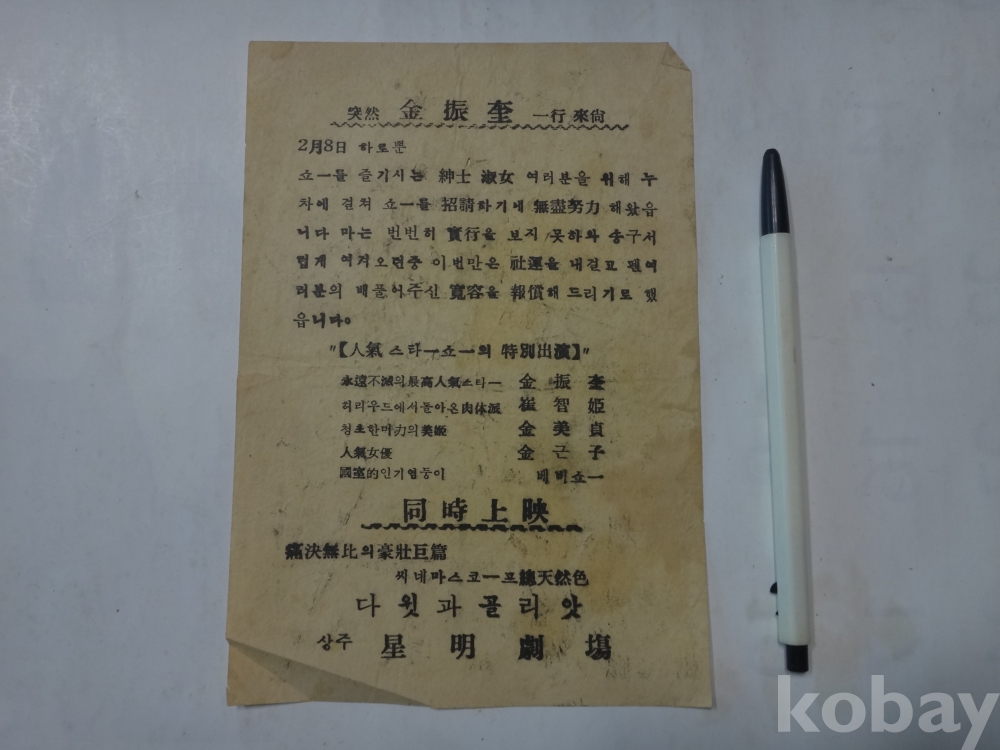 突然 金振奎 一行 來尙
2月8日 하로뿐
쇼ー를 즐기시는 紳士 淑女 여러분을 위해 누
차에 걸처 쇼ー를 招請하기에 無盡努力 해왔읍
니다 마는 번번히 實行을 보지 못하와 송구서
럽게 여겨오던중 이번만은 社運을 내걸고 팬여
러분의 배풀어주신 寬容을 報償해 드리기로 했
읍니다。
"【人氣 스타ー쇼ー의 特別出演】"
永遠不滅의最高人氣스타ー 金振奎
허리우드에서돌아온肉体派 崔智姬
청초한매力의美姬 金美貞
人氣女優 金근子
國室的인기염둥이 베비쇼ー
同時上映
痛決無比의豪壯巨篇
씨네마스코ー프總天然色
다윗과골리앗
상주 星明劇場
kobay